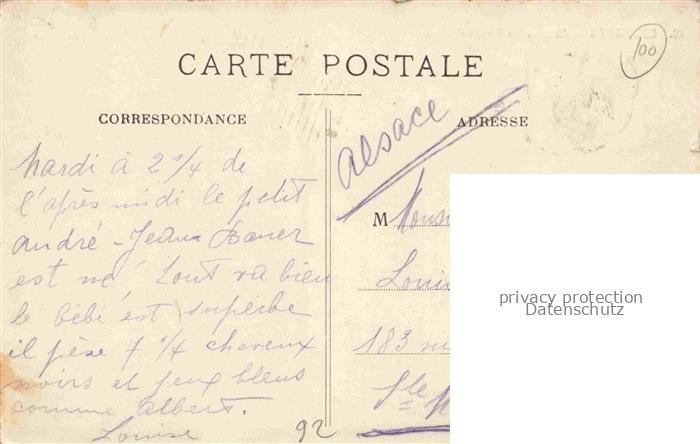 100
CARTE POSTALE
CORRESPONDANCE
ADRESSE
Alsace
Mardi à 2 1/4 de
l'après midi le petit
André-Jean Bauer
est né, Tout va bien
le bébé est superbe
il pèse 7 1/4 cheveux
noirs et yeux bleus
comme Albert.
Louise
92
M
Louis
183
Ste
privacy protection
Datenschutz